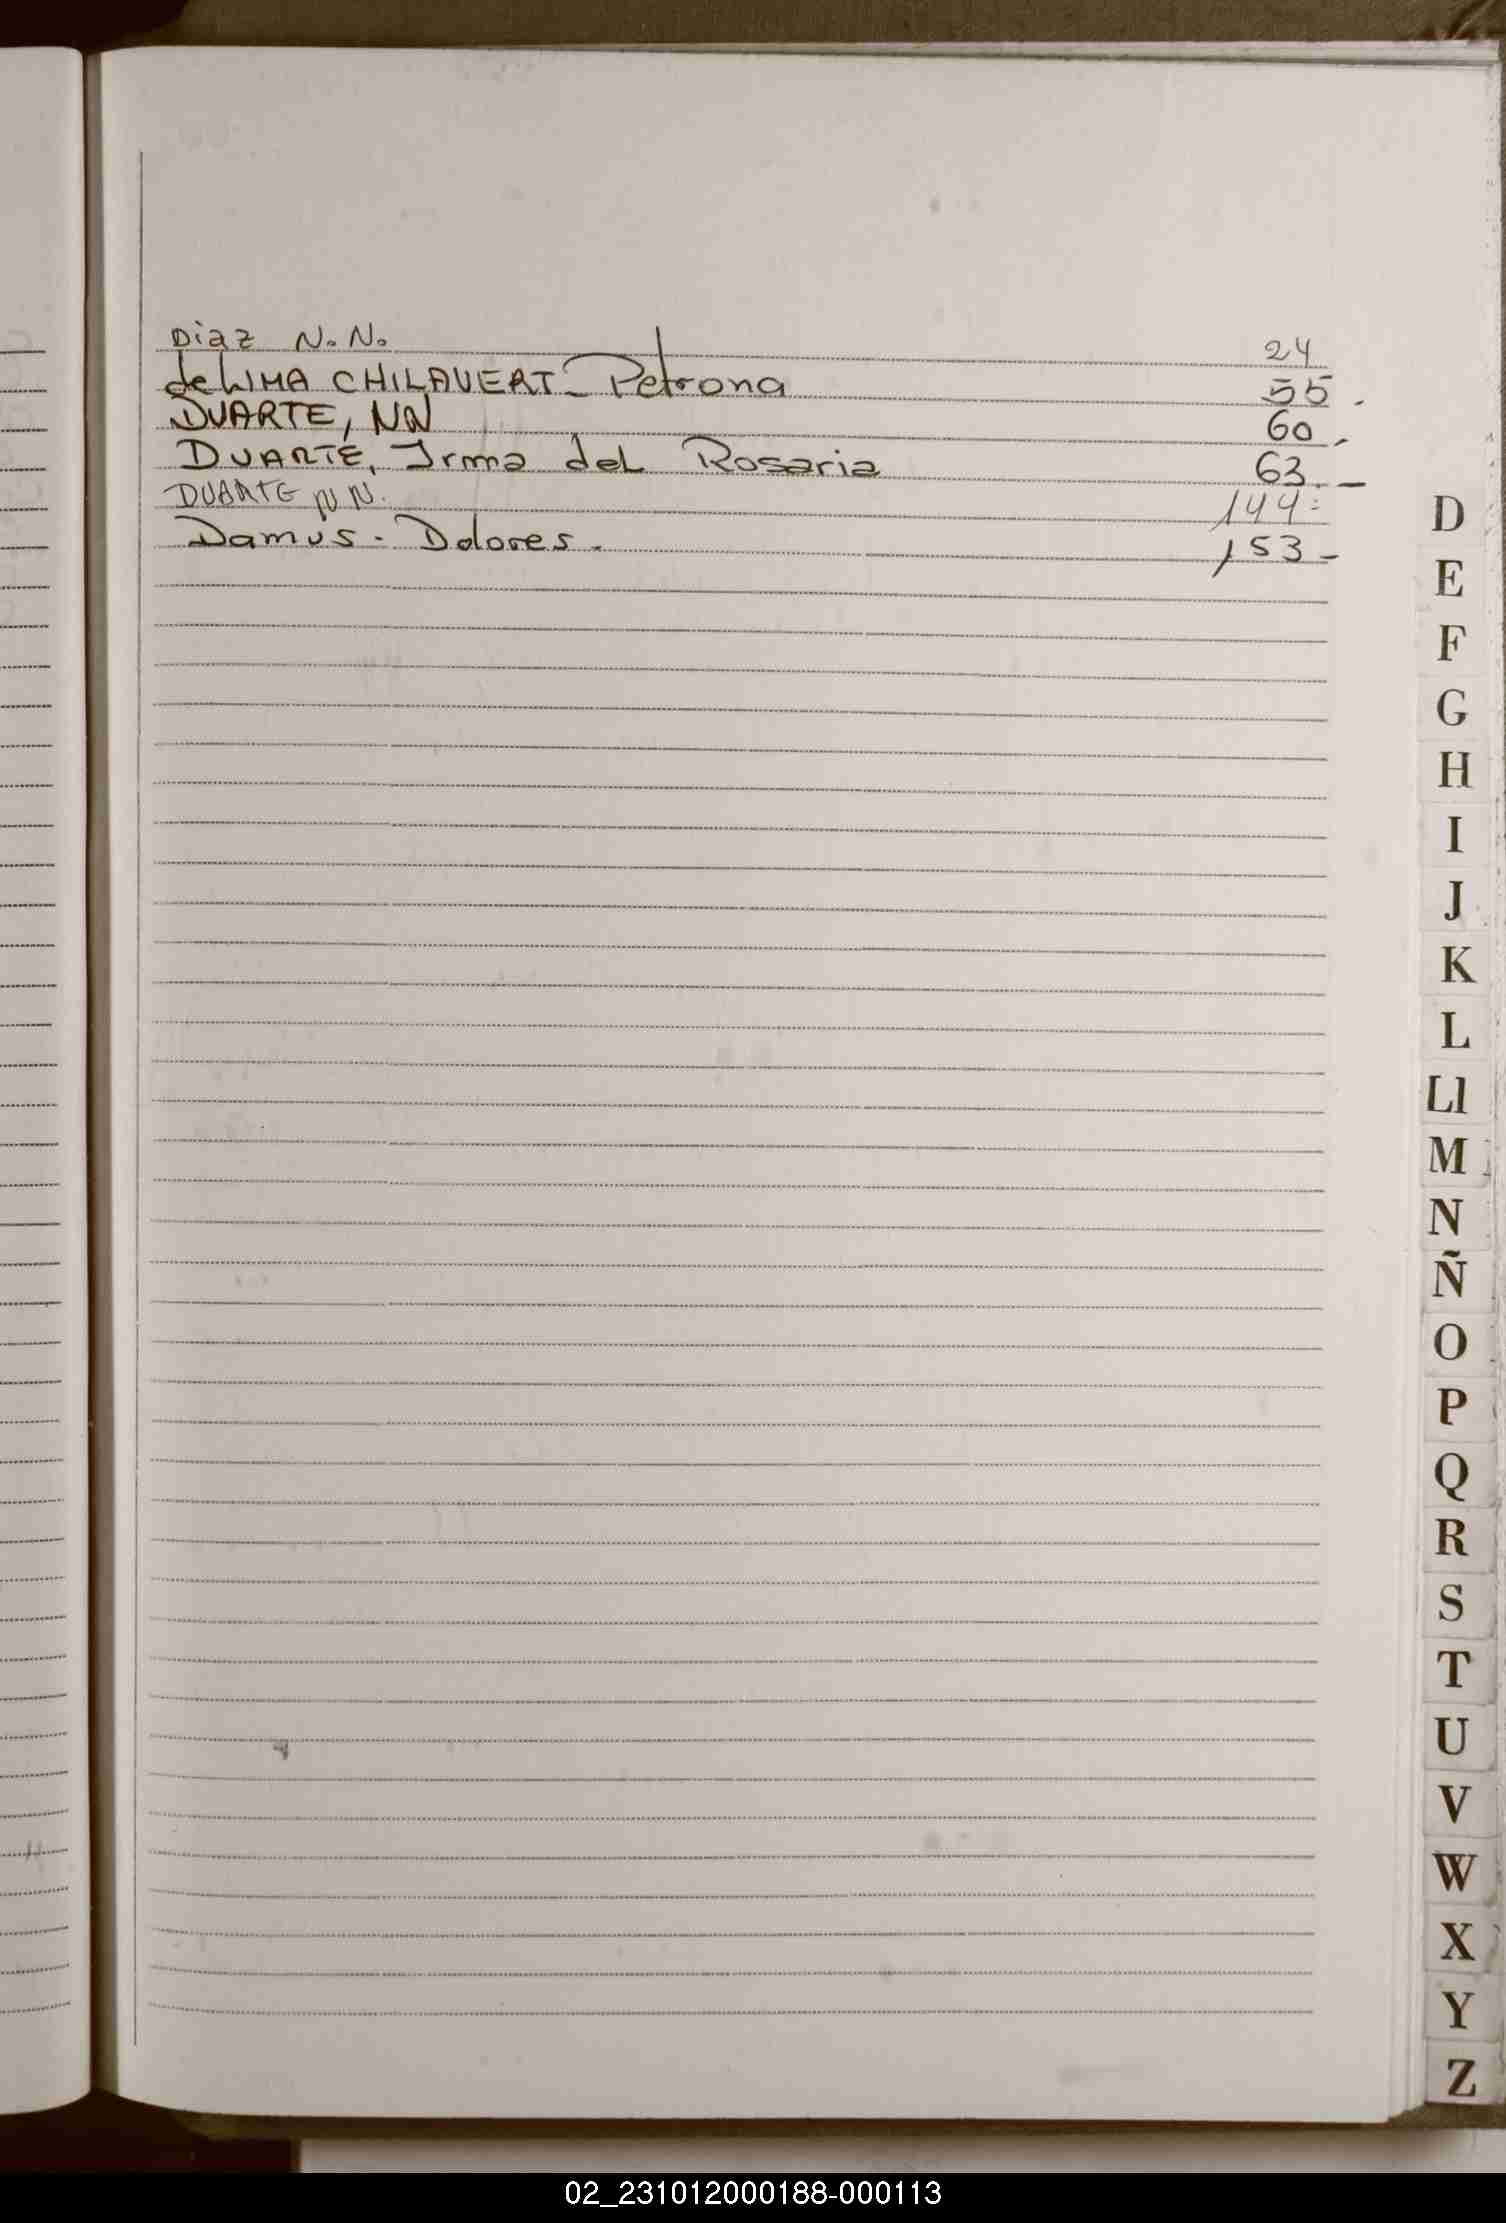 Diaz N.N. 24
de LIMA CHILAVERT - Petrona 55.
DUARTE, NN 60.
DUARTE, Irma del Rosaria 63. -
DUARTE N N. 144.-
Damus - Dolores. 153 -
D
E
F
G
H
I
J
K
L
Ll
M
N
Ñ
O
P
Q
R
S
T
U
V
W
X
Y
Z
02_231012000188-000113